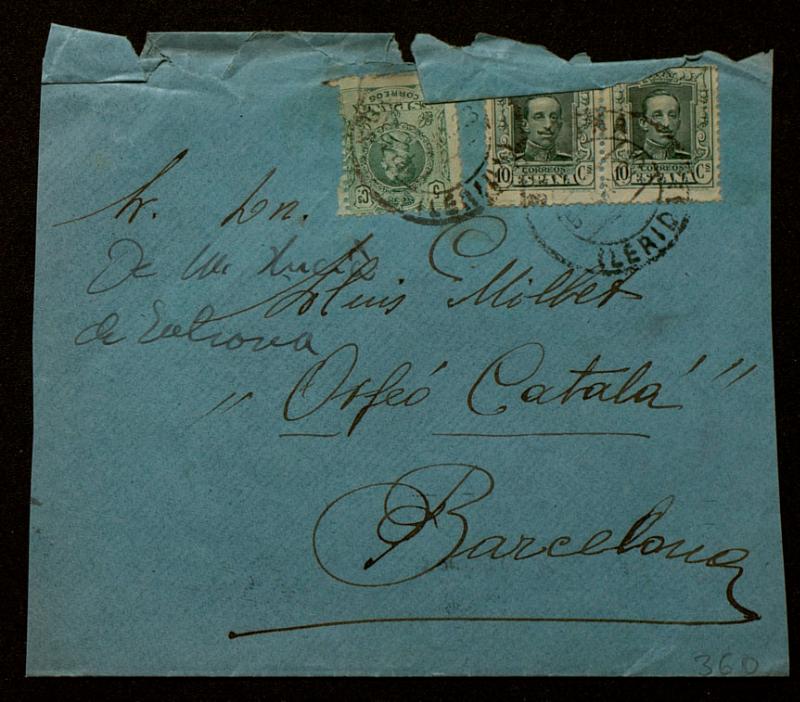 CORREOS
10 CORREOS Cs
ESPAÑA
10 CORREOS Cs
ESPAÑA
LERIDA
LERIDA
Sr. Dn.
Lluis Millet
"Orfeó Català"
Barcelona
De
de
360